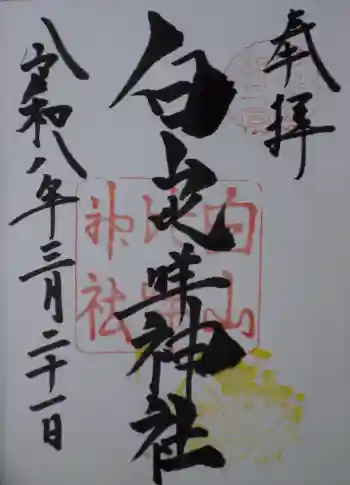 奉拝
白山比咩神社
令和八年三月二十一日
白山
比咩
神社